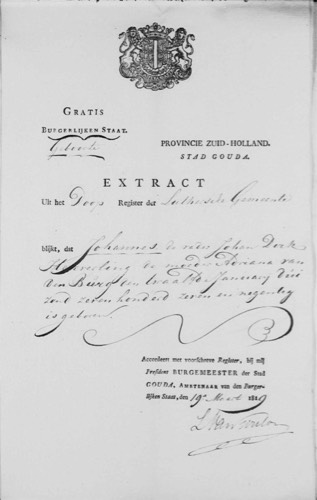 GRATIS
BURGERLIJKEN STAAT.
Geboorte
PROVINCIE ZUID-HOLLAND.
STAD GOUDA.
EXTRACT
Uit het Doop Register der Luthersche Gemeente
blijkt, dat Johannes, de vader Johan Dirk
de moeder Adriana van
den Burg den twaalfden January Dui
zend zeven honderd zeven en negentig
is geboren.
Accordeert met voorschreven Register, bij mij
President BURGEMEESTER der Stad
GOUDA, AMBTENAAR van den Burger-
lijken Staat, den 19e Maart 1819